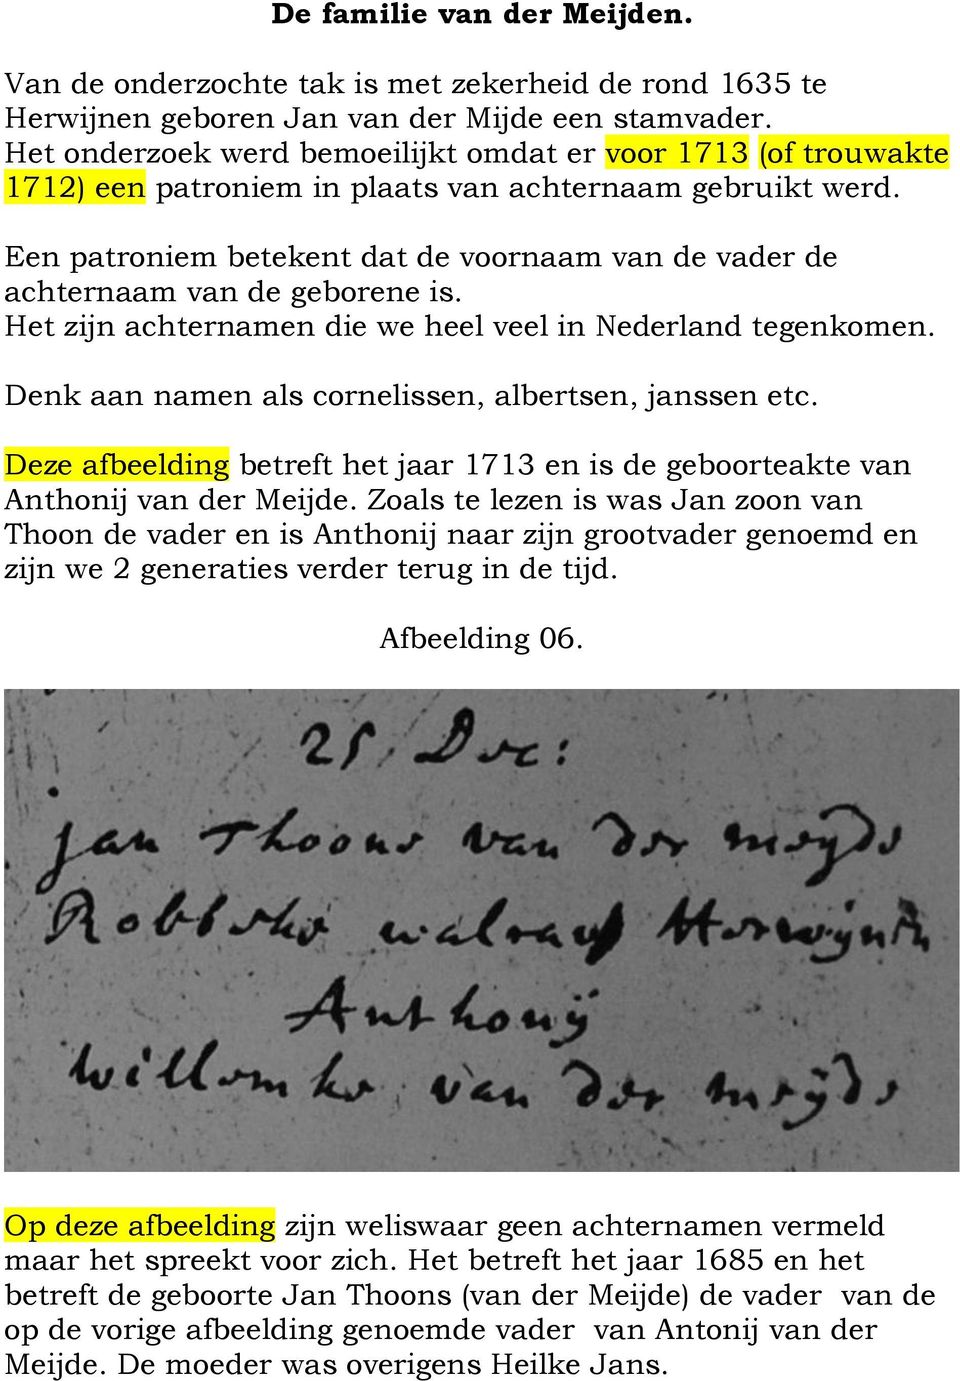 De familie van der Meijden.
Van de onderzochte tak is met zekerheid de rond 1635 te
Herwijnen geboren Jan van der Mijde een stamvader.
Het onderzoek werd bemoeilijkt omdat er voor 1713 (of trouwakte
1712) een patroniem in plaats van achternaam gebruikt werd.
Een patroniem betekent dat de voornaam van de vader de
achternaam van de geborene is.
Het zijn achternamen die we heel veel in Nederland tegenkomen.
Denk aan namen als cornelissen, albertsen, janssen etc.
Deze afbeelding betreft het jaar 1713 en is de geboorteakte van
Anthonij van der Meijde. Zoals te lezen is was Jan zoon van
Thoon de vader en is Anthonij naar zijn grootvader genoemd en
zijn we 2 generaties verder terug in de tijd.
Afbeelding 06.
25 Dec:
Jan Thoons van der meyde
Robbeke walraus Herwijnen
Anthonij
Willemke van der meijde
Op deze afbeelding zijn weliswaar geen achternamen vermeld
maar het spreekt voor zich. Het betreft het jaar 1685 en het
betreft de geboorte Jan Thoons (van der Meijde) de vader van de
op de vorige afbeelding genoemde vader van Antonij van der
Meijde. De moeder was overigens Heilke Jans.